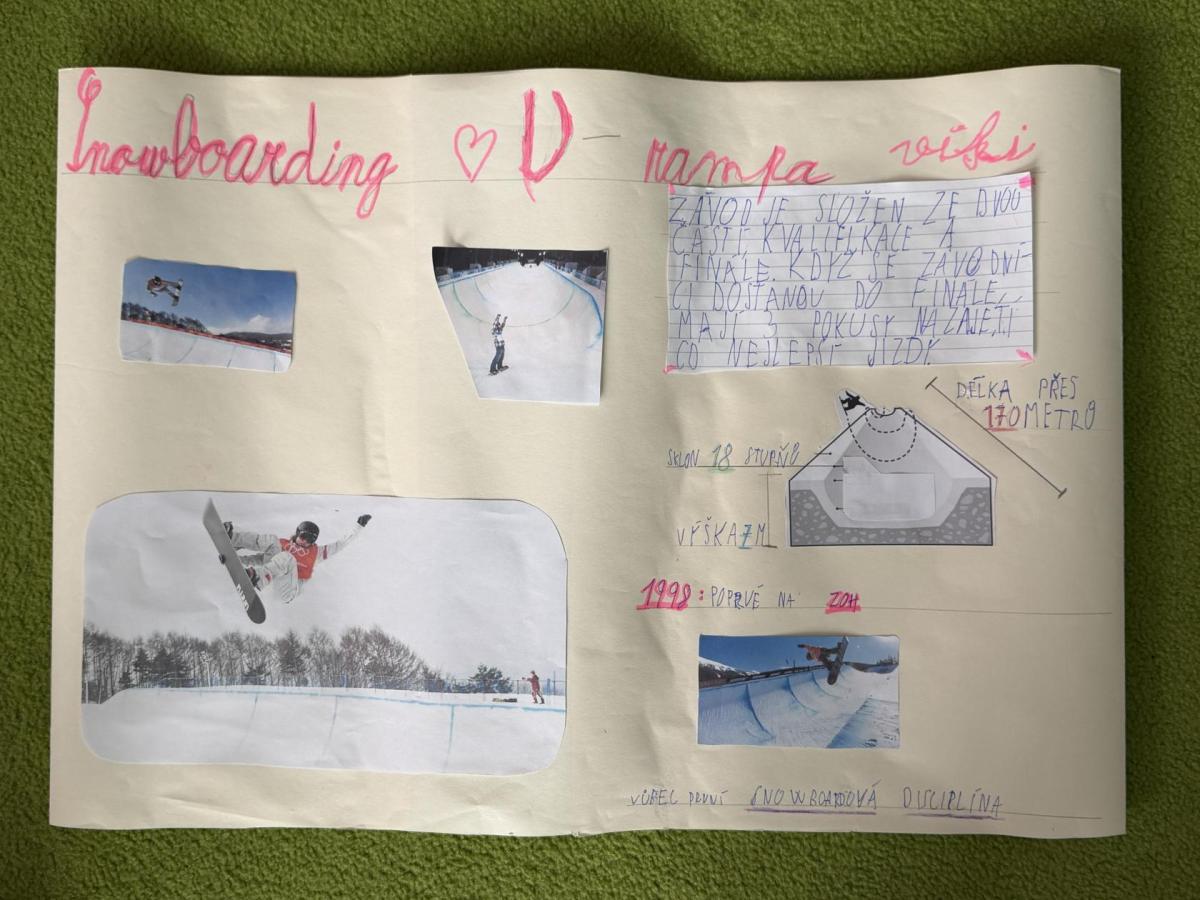 Snowboarding ♡ U - rampa viki
ZÁVOD JE SLOŽEN ZE DVOU
ČÁSTÍ KVALIFIKACE A
FINÁLE. KDYŽ SE ZÁVODNÍ
CI DOSTANOU DO FINÁLE,
MAJÍ 3 POKUSY NA ZAJETÍ
CO NEJLEPŠÍ JÍZDY.
DÉLKA PŘES
170METRŮ
SKLON 18 STUPŇŮ
VÝŠKA 7M
1998: POPRVÉ NA ZOH
VŮBEC PRVNÍ SNOWBOARDOVÁ DISCIPLÍNA